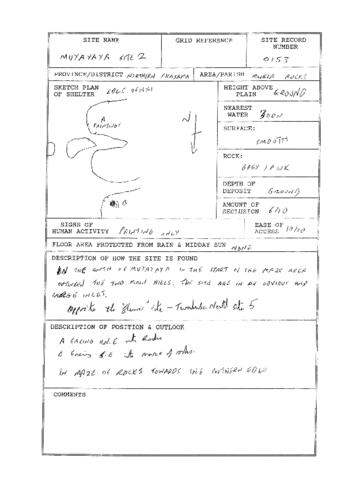 SITE NAME
GRID REFERENCE
SITE RECORD NUMBER
MUYAYAYA SITE 2
0153
PROVINCE/DISTRICT NORTHERN
AREA/PARISH ROCKS
SKETCH PLAN OF SHELTER
HEIGHT ABOVE PLAIN GROUND
A
PAINTINGS
N
B
NEAREST WATER 300M
SURFACE:
SMOOTH
ROCK:
GREY / PINK
DEPTH OF DEPOSIT GROUND
AMOUNT OF SECLUSION 6/10
SIGNS OF HUMAN ACTIVITY PAINTING ONLY
EASE OF ACCESS 10/10
FLOOR AREA PROTECTED FROM RAIN & MIDDAY SUN NONE
DESCRIPTION OF HOW THE SITE IS FOUND
THE OF MUYAYAYA IS THE START OF THE MAZE AREA
BETWEEN THE TWO MAIN HILLS. THE SITE ARE IN AN OBVIOUS AND
LARGE INLET.
Opposite the site - North site 5
DESCRIPTION OF POSITION & OUTLOOK
A FACING N.N.E
B facing S.E maze of rocks.
IN MAZE OF ROCKS TOWARDS THE
COMMENTS